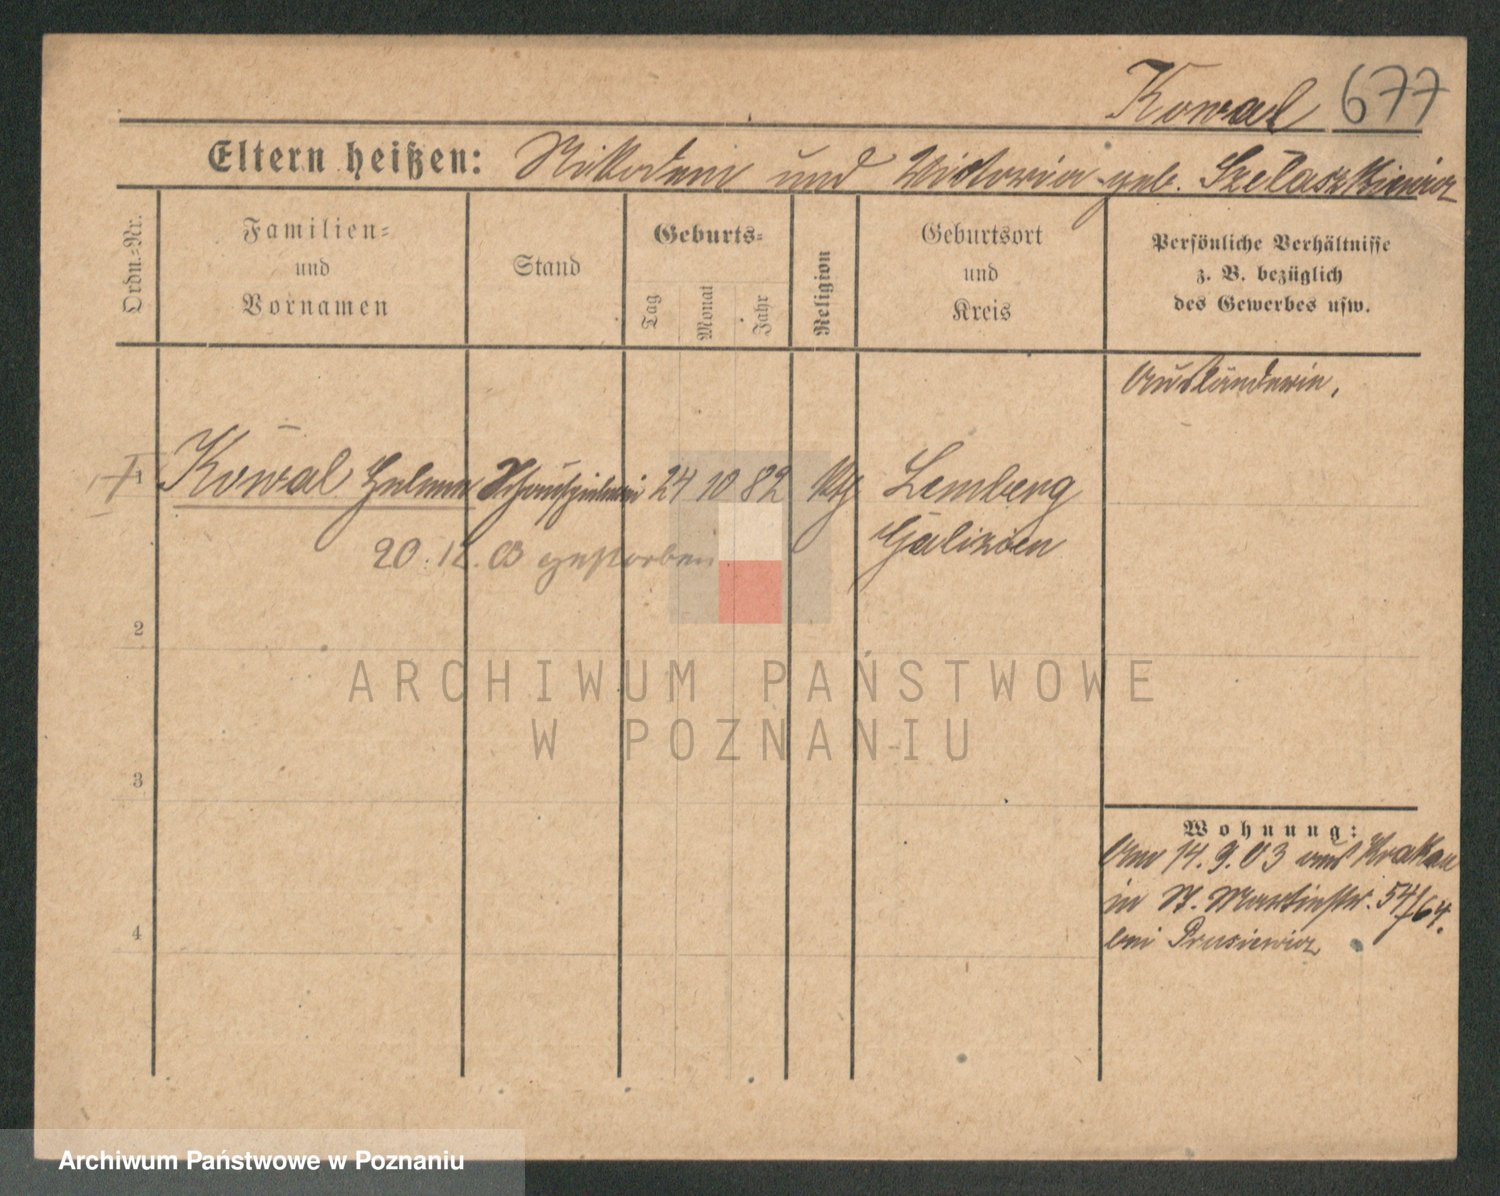 Kowal 677
Eltern heißen: Nikodem und Victoria geb. Szelaszkiewicz
Ordn.-Nr.
Familien-
und
Vornamen
Stand
Geburts-
Tag
Monat
Jahr
Religion
Geburtsort
und
Kreis
Persönliche Verhältnisse
z. B. bezüglich
des Gewerbes usw.
Ausländerin.
1 Kowal Helene Schauspielerin 24 10 82 kth Lemberg
Galizien
20.12.03 gestorben
2
3
4
Wohnung:
Am 14.9.03 aus Krakau
in St. Martinstr. 54/64.
bei Prusiewicz
ARCHIWUM PAŃSTWOWE
W POZNANIU
Archiwum Państwowe w Poznaniu